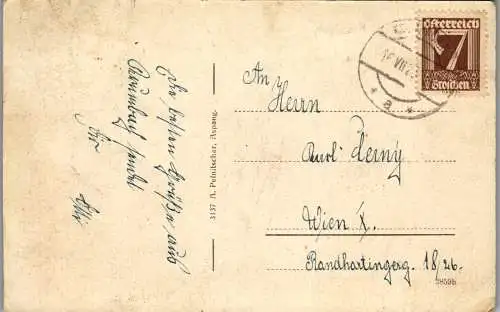 Die besten Grüße aus
Krumbach sendet
Dir
Otti
3137 A. Pelnitscher, Aspang.
Österreich
7
Groschen
VII
* a *
An
Herrn
Karl Herny
Wien X.
Randhartingerg. 18/26.
38595